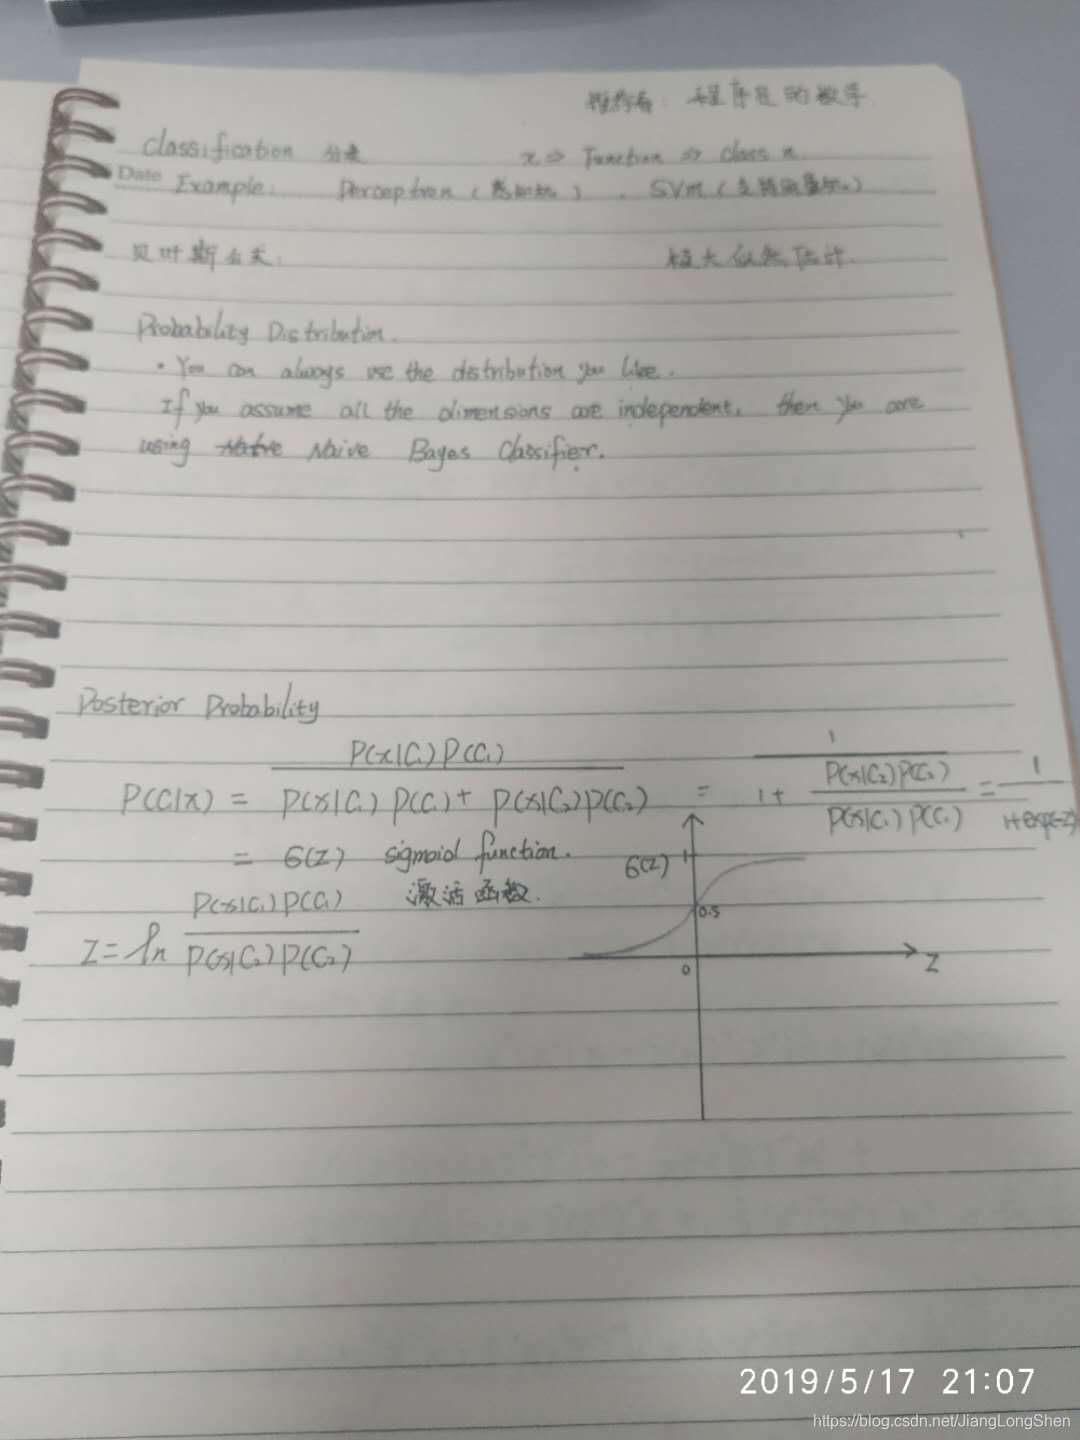 推荐看: 程序员的数学
Classification 分类 x ⇒ Function ⇒ Class n.
Date Example: Perceptron (感知机), SVM (支持向量机)
贝叶斯公式: 极大似然估计.
Probability Distribution.
· You can always use the distribution you like.
If you assume all the dimensions are independent, then you are
using Naive Bayes Classifier.
Posterior Probability
P(C₁|x) = P(x|C₁)P(C₁) / (P(x|C₁)P(C₁) + P(x|C₂)P(C₂)) = 1 / (1 + P(x|C₂)P(C₂) / P(x|C₁)P(C₁)) = 1 / (1+exp(-z))
= σ(z) sigmoid function.
激活函数.
z = ln P(x|C₁)P(C₁) / P(x|C₂)P(C₂)
σ(z) 1
0.5
0 z
2019/5/17 21:07
https://blog.csdn.net/JiangLongShen